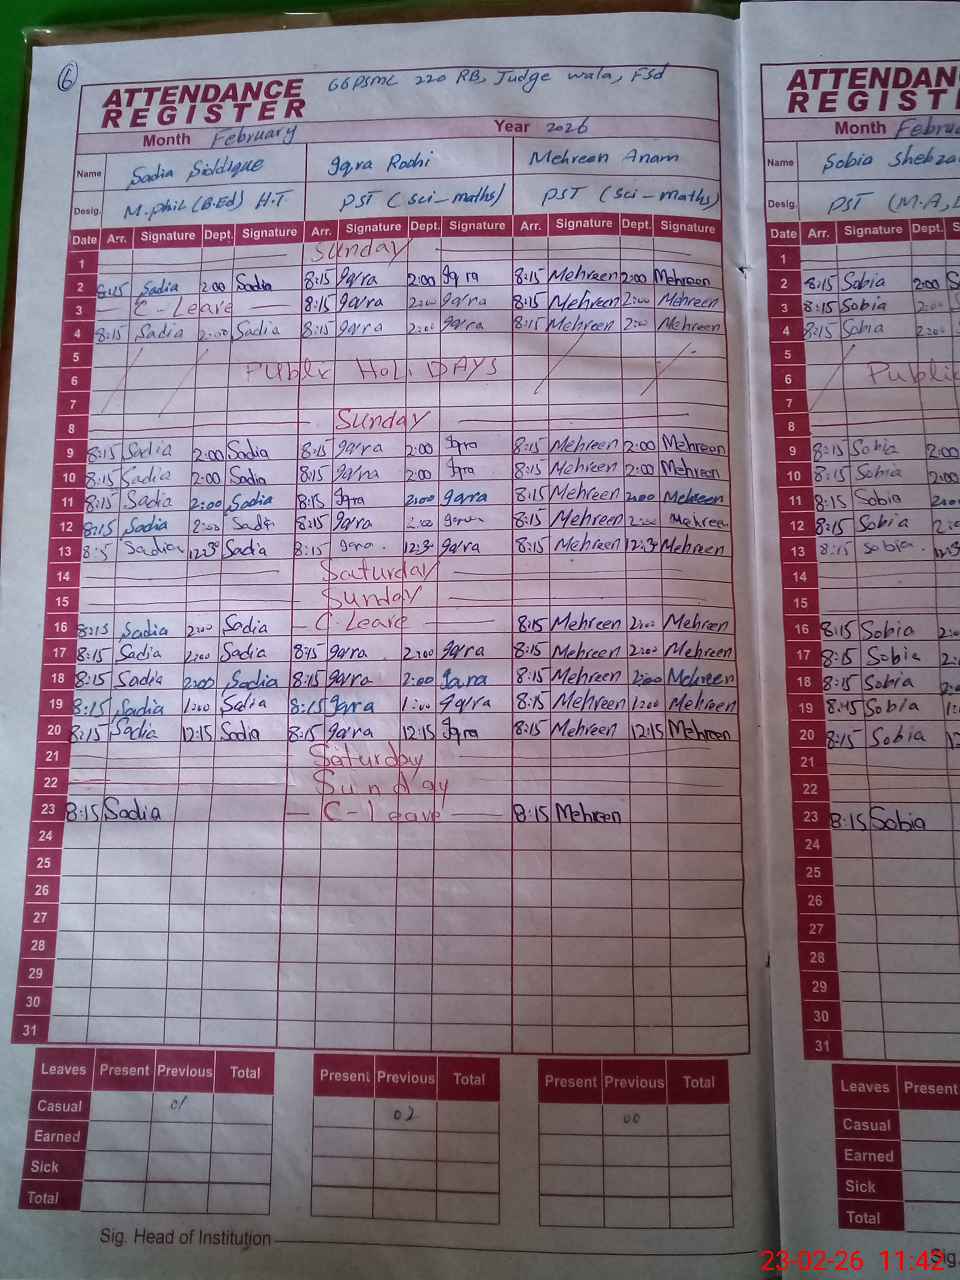 6
ATTENDANCE REGISTER GGPSMC 220 RB, Judge wala, FSd
Month February Year 2026
Name Sadia Siddique Iqra Mehreen Anam
Desig. M.phil (B.Ed) H.T PST (Sci-maths) PST (Sci-maths)
Date Arr. Signature Dept. Signature Arr. Signature Dept. Signature Arr. Signature Dept. Signature
1 Sunday
2 8:15 Sadia 2:00 Sadia 8:15 Iqra 2:00 Iqra 8:15 Mehreen 2:00 Mehreen
3 C-Leave 8:15 Iqra 2:00 Iqra 8:15 Mehreen 2:00 Mehreen
4 8:15 Sadia 2:00 Sadia 8:15 Iqra 2:00 Iqra 8:15 Mehreen 2:00 Mehreen
5
6 Public HoliDAYS
7
8 Sunday
9 8:15 Sadia 2:00 Sadia 8:15 Iqra 2:00 Iqra 8:15 Mehreen 2:00 Mehreen
10 8:15 Sadia 2:00 Sadia 8:15 Iqra 2:00 Iqra 8:15 Mehreen 2:00 Mehreen
11 8:15 Sadia 2:00 Sadia 8:15 Iqra 2:00 Iqra 8:15 Mehreen 2:00 Mehreen
12 8:15 Sadia 2:00 Sadia 8:15 Iqra 2:00 Iqra 8:15 Mehreen 2:00 Mehreen
13 Sadia 12:30 Sadia 8:15 Iqra 12:3 Iqra 8:15 Mehreen 12:3 Mehreen
14 Saturday
15 Sunday
16 8:15 Sadia 2:00 Sadia C-Leave 8:15 Mehreen 2:00 Mehreen
17 8:15 Sadia 2:00 Sadia 8:15 Iqra 2:00 Iqra 8:15 Mehreen 2:00 Mehreen
18 8:15 Sadia 2:00 Sadia 8:15 Iqra 2:00 Iqra 8:15 Mehreen 2:00 Mehreen
19 8:15 Sadia 1:00 Sadia 8:15 Iqra 1:00 Iqra 8:15 Mehreen 1:00 Mehreen
20 8:15 Sadia 12:15 Sadia 8:15 Iqra 12:15 Iqra 8:15 Mehreen 12:15 Mehreen
21 Saturday
22 Sunday
23 8:15 Sadia C-Leave 8:15 Mehreen
24
25
26
27
28
29
30
31
Leaves Present Previous Total Present Previous Total Present Previous Total
Casual 01 02 00
Earned
Sick
Total
Sig. Head of Institution
Month
Name Sobia
Desig. PST (M.A,
Date Arr. Signature Dept.
1
2 8:15 Sobia 2:00
3 8:15 Sobia
4 8:15 Sobia 2:00
5
6 Public
7
8
9 8:15 Sobia 2:00
10 8:15 Sobia 2:00
11 8:15 Sobia 2:00
12 8:15 Sobia
13 8:15 Sobia
14
15
16 8:15 Sobia
17 8:15 Sobia
18 8:15 Sobia
19 8:45 Sobia
20 8:15 Sobia
21
22
23 8:15 Sobia
24
25
26
27
28
29
30
31
Leaves Present
Casual
Earned
Sick
Total
23-02-26 11:42